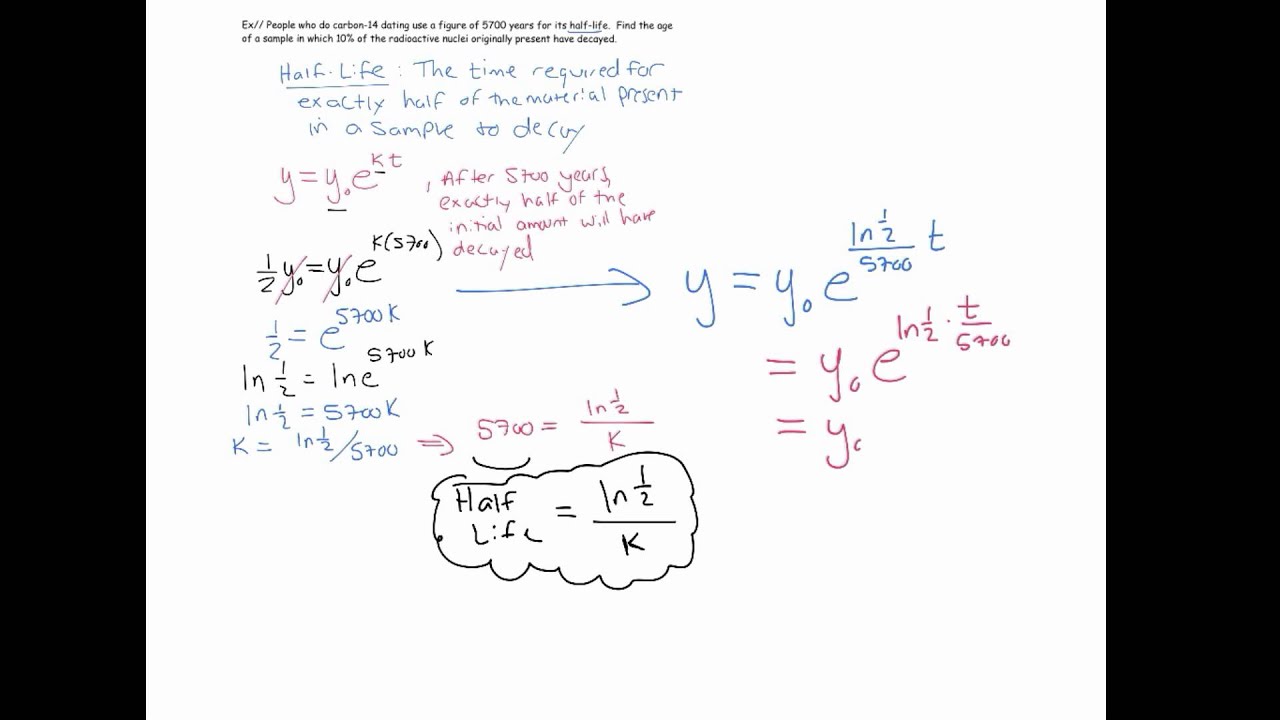 Ex// People who do carbon-14 dating use a figure of 5700 years for its half-life. Find the age
of a sample in which 10% of the radioactive nuclei originally present have decayed.
Half-Life : The time required for
exactly half of the material present
in a sample to decay
y = y₀e^(kt)
, After 5700 years,
exactly half of the
initial amount will have
decayed
1/2 y₀ = y₀e^(K(5700))
1/2 = e^(5700K)
ln 1/2 = ln e^(5700K)
ln 1/2 = 5700K
K = ln 1/2 / 5700 ⇒ 5700 = ln 1/2 / K
Half Life = ln 1/2 / K
→ y = y₀e^((ln 1/2 / 5700) t)
= y₀e^(ln 1/2 · t/5700)
= y₀